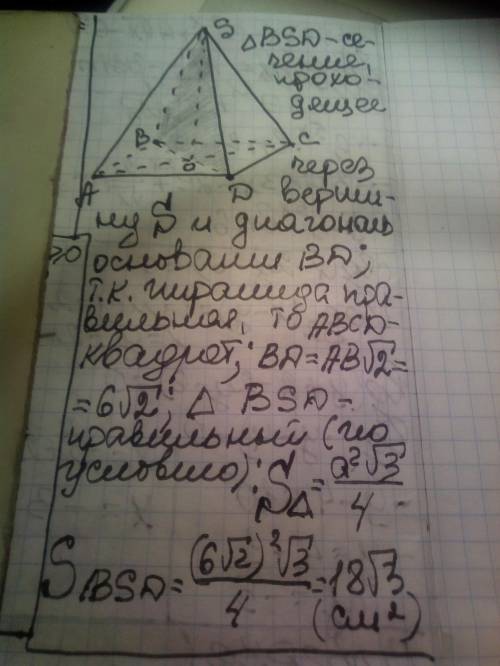 S
△BSD - се-
чение,
прохо-
дящее
B
C
O
A
D
через
верши-
ну S и диагональ
≥0
основания BD;
т.к. пирамида пра-
вильная, то ABCD-
квадрат; BD = AB√2 =
= 6√2; △ BSD -
правильный (по
условию): S△ = a²√3 / 4
S BSD = (6√2)²√3 / 4 = 18√3
(см²)